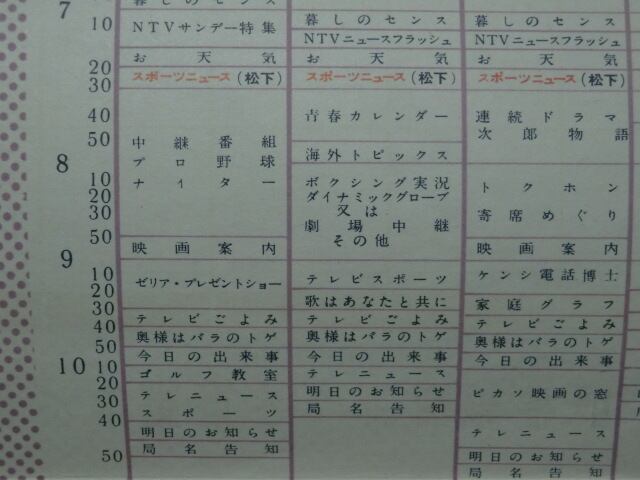 7
10
20
30
40
50
8
10
20
30
50
9
10
20
30
40
50
10
10
20
30
40
50
NTVサンデー特集
お天気
スポーツニュース(松下)
中継番組
プロ野球
ナイター
映画案内
ゼリア・プレゼントショー
テレビごよみ
奥様はバラのトゲ
今日の出来事
ゴルフ教室
テレニュース
スポーツ
明日のお知らせ
局名告知
暮しのセンス
NTVニュースフラッシュ
お天気
スポーツニュース(松下)
青春カレンダー
海外トピックス
ボクシング実況
ダイナミックグローブ
又は
劇場中継
その他
テレビスポーツ
歌はあなたと共に
テレビごよみ
奥様はバラのトゲ
今日の出来事
テレニュース
明日のお知らせ
局名告知
暮しのセンス
NTVニュースフラッシュ
お天気
スポーツニュース(松下)
連続ドラマ
次郎物語
トクホン
寄席めぐり
映画案内
ケンシ電話博士
家庭グラフ
テレビごよみ
奥様はバラのトゲ
今日の出来事
ピカソ映画の窓
テレニュース
明日のお知らせ
局名告知